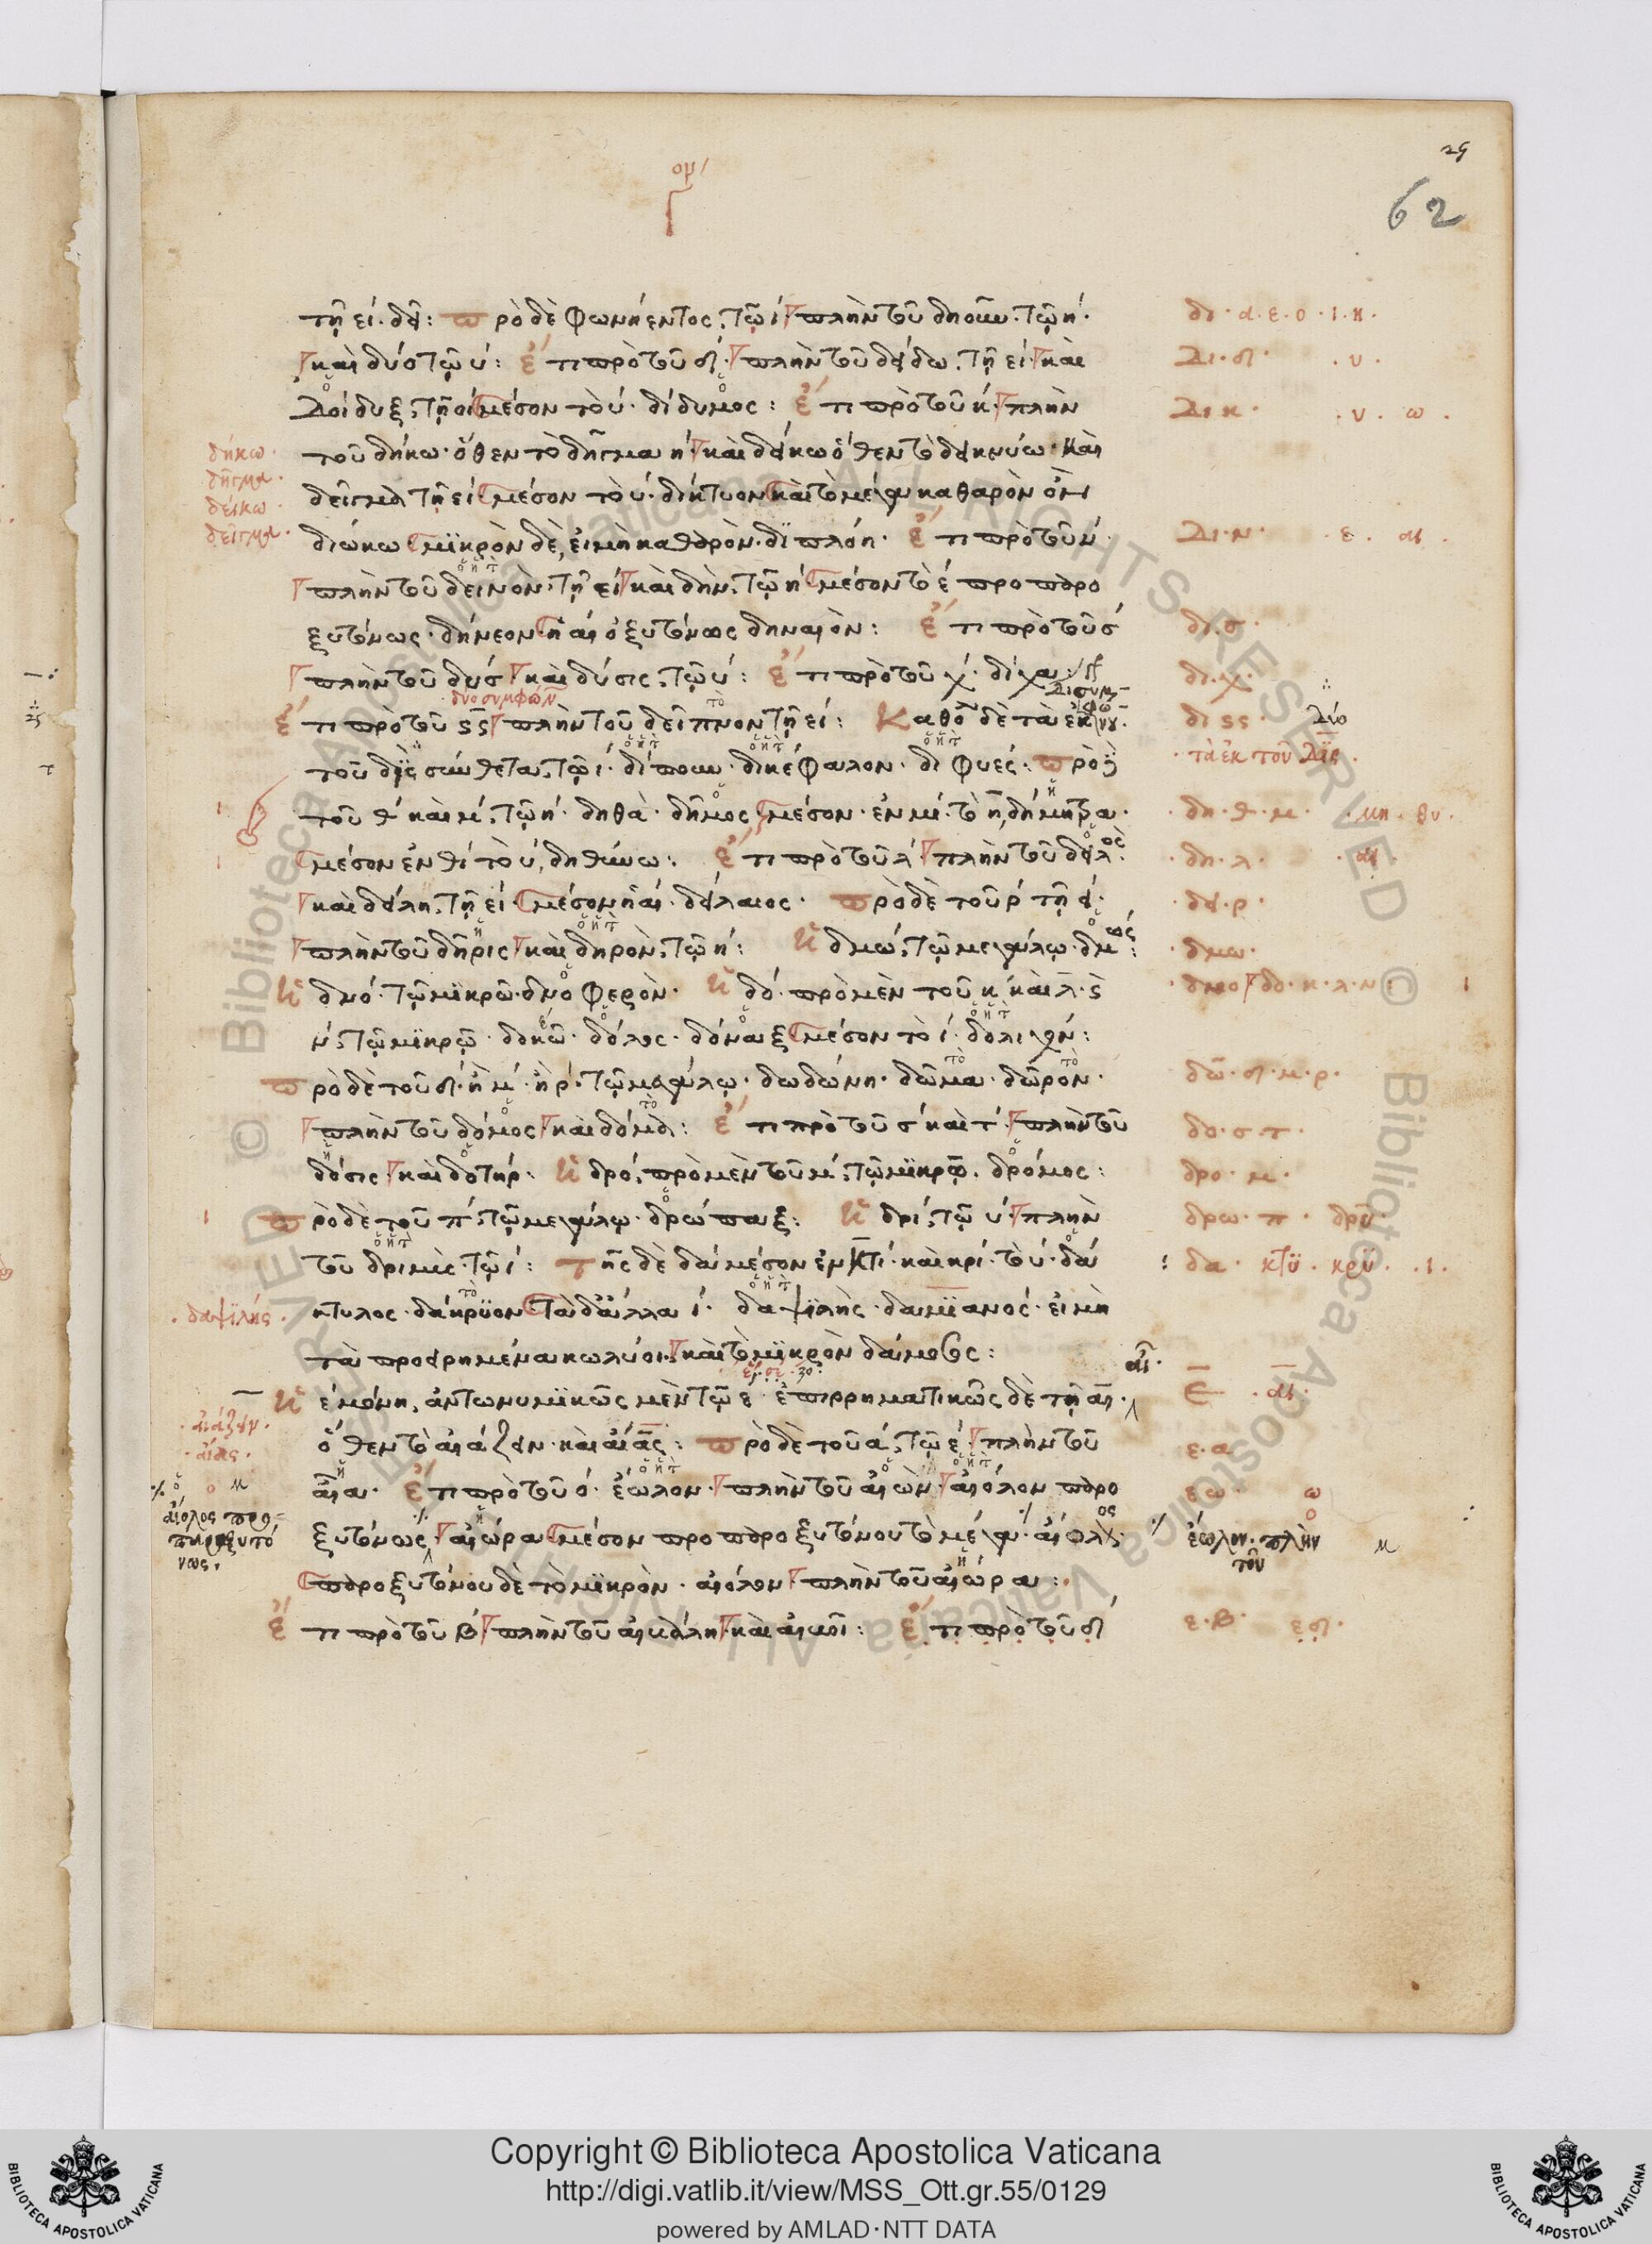 62
τῆ ει. δει: πρὸ δὲ φωνήεντος, τῶ ι πλὴν τοῦ δηοῦν. τῶ η.
καὶ δύο τῶ υ: ἔτι πρὸ τοῦ δ. πλὴν τοῦ δείδω. τῆ ει. καὶ
Δοίδυξ, τῆ οι μέσον τὸ υ. δίδυμος: ἔτι πρὸ τοῦ κ. πλὴν
τοῦ δήκω. ὅθεν τὸ δῆγμα η. καὶ δείκω ὅθεν τὸ δεικνύω. καὶ
δεῖγμα τῆ ει. μέσον τὸ υ. δίκτυον καὶ τὸ μέγα καθαρὸν ὂν
διώκω μικρὸν δὲ, εἰ μὴ καθαρὸν. διπλόη. ἔτι πρὸ τοῦ ν.
πλὴν τοῦ δεινὸν. τῆ ει καὶ δὴν. τῶ η μέσον τὸ ε προπαρο
ξυτόνως. δήνεον ἢ αι ὀξυτόνως δηναιὸν: ἔτι πρὸ τοῦ σ
πλὴν τοῦ δυσ καὶ δύσις. τῶ υ: ἔτι πρὸ τοῦ χ. δίχα:
ἔτι πρὸ τοῦ πλὴν τοῦ δεῖπνον τῆ ει: Καθόλου δὲ τὰ ἐκ
τοῦ δὶς σύνθετα, τῶ ι. δίπουν. δικέφαλον. διφυές: πρὸ
τοῦ θ καὶ μ. τῶ η. δηθὰ. δῆμος μέσον. ἐν μ. τὸ η, δήμητρα.
μέσον ἐν θ τὸ υ, δηθύνω: ἔτι πρὸ τοῦ λ. πλὴν τοῦ δειλὸς
καὶ δείλη, τῆ ει. μέσον ἡ αι. δείλαιος. πρὸ δὲ τοῦ ρ τῆ ει.
πλὴν τοῦ δῆρις καὶ δηρὸν. τῶ η: δμω. τῶ μεγάλω. δμώς:
δνο. τῶ μικρῶ. δνοφερὸν. δο. πρὸ μὲν τοῦ κ καὶ λ. καὶ
ν. τῶ μικρῶ. δοκῶ. δόλος. δόναξ μέσον τὸ ι. δολιχὴν:
πρὸ δὲ τοῦ δ. ἢ μ. ἢ ρ. τῶ μεγάλω. δωδώνη. δῶμα. δῶρον.
πλὴν τοῦ δόμος καὶ δόμα: ἔτι πρὸ τοῦ σ καὶ τ. πλὴν τοῦ
δόσις. καὶ δοτήρ: δρο. πρὸ μὲν τοῦ μ. τῶ μικρῶ. δρόμος:
πρὸ δὲ τοῦ π. τῶ μεγάλω. δρώπαξ: δρι, τῶ υ. πλὴν
τοῦ δριμὺς. τῶ ι: τῆς δὲ δα μέσον ἐν κτι. καὶ κρι. τὸ υ. δά
κτυλος. δάκρυον τὰ δ' ἄλλα ι. δαψιλὴς. δαμιανός. εἰ μὴ
τὰ προειρημένα κωλύοι. καὶ τὸ μικρὸν δάμοος:
ε μόνη, ἀντωνυμικῶς μὲν τῶ ε. ἐπιρρηματικῶς δὲ τῆ αι.
ὅθεν τὸ αἰάζειν. καὶ αἴας: πρὸ δὲ τοῦ α, τῶ ε. πλὴν τοῦ
αἶα. ἔτι πρὸ τοῦ ο. ἕωλον. πλὴν τοῦ αἰὼν. αἰόλον παρο
ξυτόνως, αἰώρα μέσον προπαροξυτόνου τὸ μέγα. αἴολος.
παροξυτόνου δὲ τὸ μικρὸν. αἰόλον πλὴν τοῦ αἰώρα:
ἔτι πρὸ τοῦ β πλὴν τοῦ καὶ αἰβοῖ: ἔτι πρὸ τοῦ δ
δήκω.
δῆγμα.
δείκω.
δεῖγμα.
δαψιλής.
αἰάζειν.
αἴας.
αἴολος προ
παροξυτό
νως.
δι. α. ε. ο. ι. η.
Δι. δ. υ.
Δι κ. υ. ω.
Δι. ν. ε. αι.
δι. σ.
δι. χ.
τὰ ἐκ τοῦ Δὶς.
δη. θ. μ. μη. θυ.
δη. λ. αι.
δει. ρ.
δμω.
δνο δο. κ. λ. ν:
δω. δ. μ. ρ.
δο. σ. τ.
δρο. μ.
δρω. π. δρυ.
δα. κτυ. κρυ. ι.
ε. αι.
ε. α
εω. ω
ἕωλον. πλὴν
τοῦ
ε. β. ε δ.
Copyright © Biblioteca Apostolica Vaticana
http://digi.vatlib.it/view/MSS_Ott.gr.55/0129
powered by AMLAD·NTT DATA
BIBLIOTECA APOSTOLICA VATICANA
BIBLIOTECA APOSTOLICA VATICANA